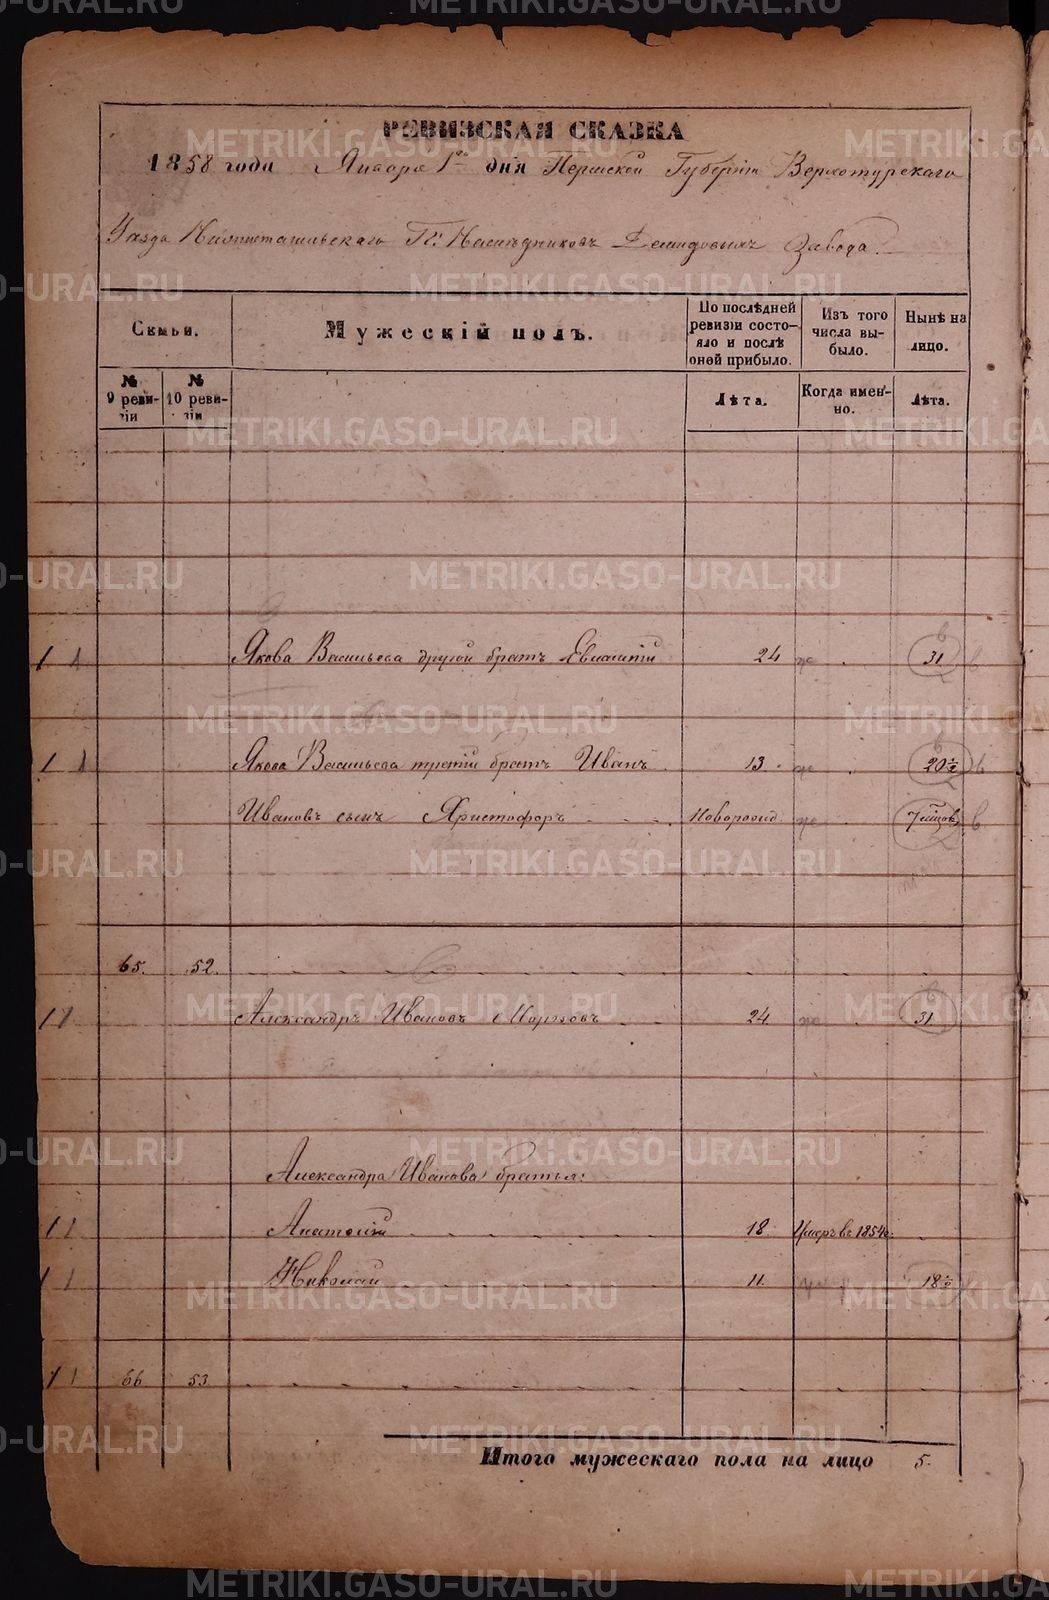 РЕВИЗСКАЯ СКАЗКА
1858 года Января 1го дня Пермской Губерніи Верхотурскаго
Уѣзда Нижнетагильскаго Гг. Наслѣдниковъ Демидовыхъ Завода.
Семьи.
Мужескій полъ.
По послѣдней ревизіи состо-
яло и послѣ
оной прибыло.
Изъ того
числа вы-
было.
Нынѣ на
лицо.
№
9 реви-
зіи
№
10 реви-
зіи
Лѣта.
Когда имен-
но.
Лѣта.
1 1 Якова Васильева другой братъ 24 31
1 1 Якова Васильева третій братъ Иванъ 13 20½ в
Ивановъ сынъ Христофоръ новорожд. 7 мѣсяцов. в
65. 52.
1 1 Александръ Ивановъ 24 31
Александра Иванова братья:
1 1 Анатолій 18 Умеръ въ 1854 г.
1 1 Николай 11. 18½
1 1 66 53
Итого мужескаго пола на лицо 5.
METRIKI.GASO-URAL.RU